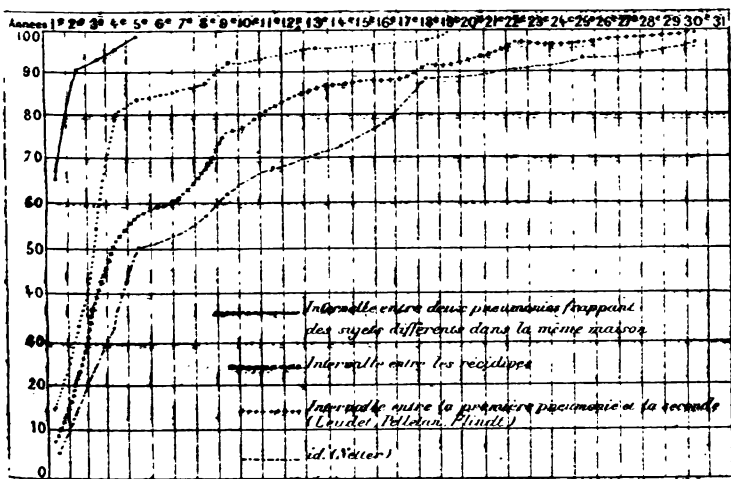 Années 1e 2e 3e 4e 5e 6e 7e 8e 9e 10e 11e 12e 13e 14e 15e 16e 17e 18e 19e 20e 21e 22e 23e 24e 25e 26e 27e 28e 29e 30e 31
100
90
80
70
60
50
40
20
10
0
Intervalle entre deux pneumonies frappant
des sujets différents dans la même maison
Intervalle entre les récidives
Intervalle entre la première pneumonie et la seconde
(Leudet, Pelletan, Flindt)
id. (Netter)